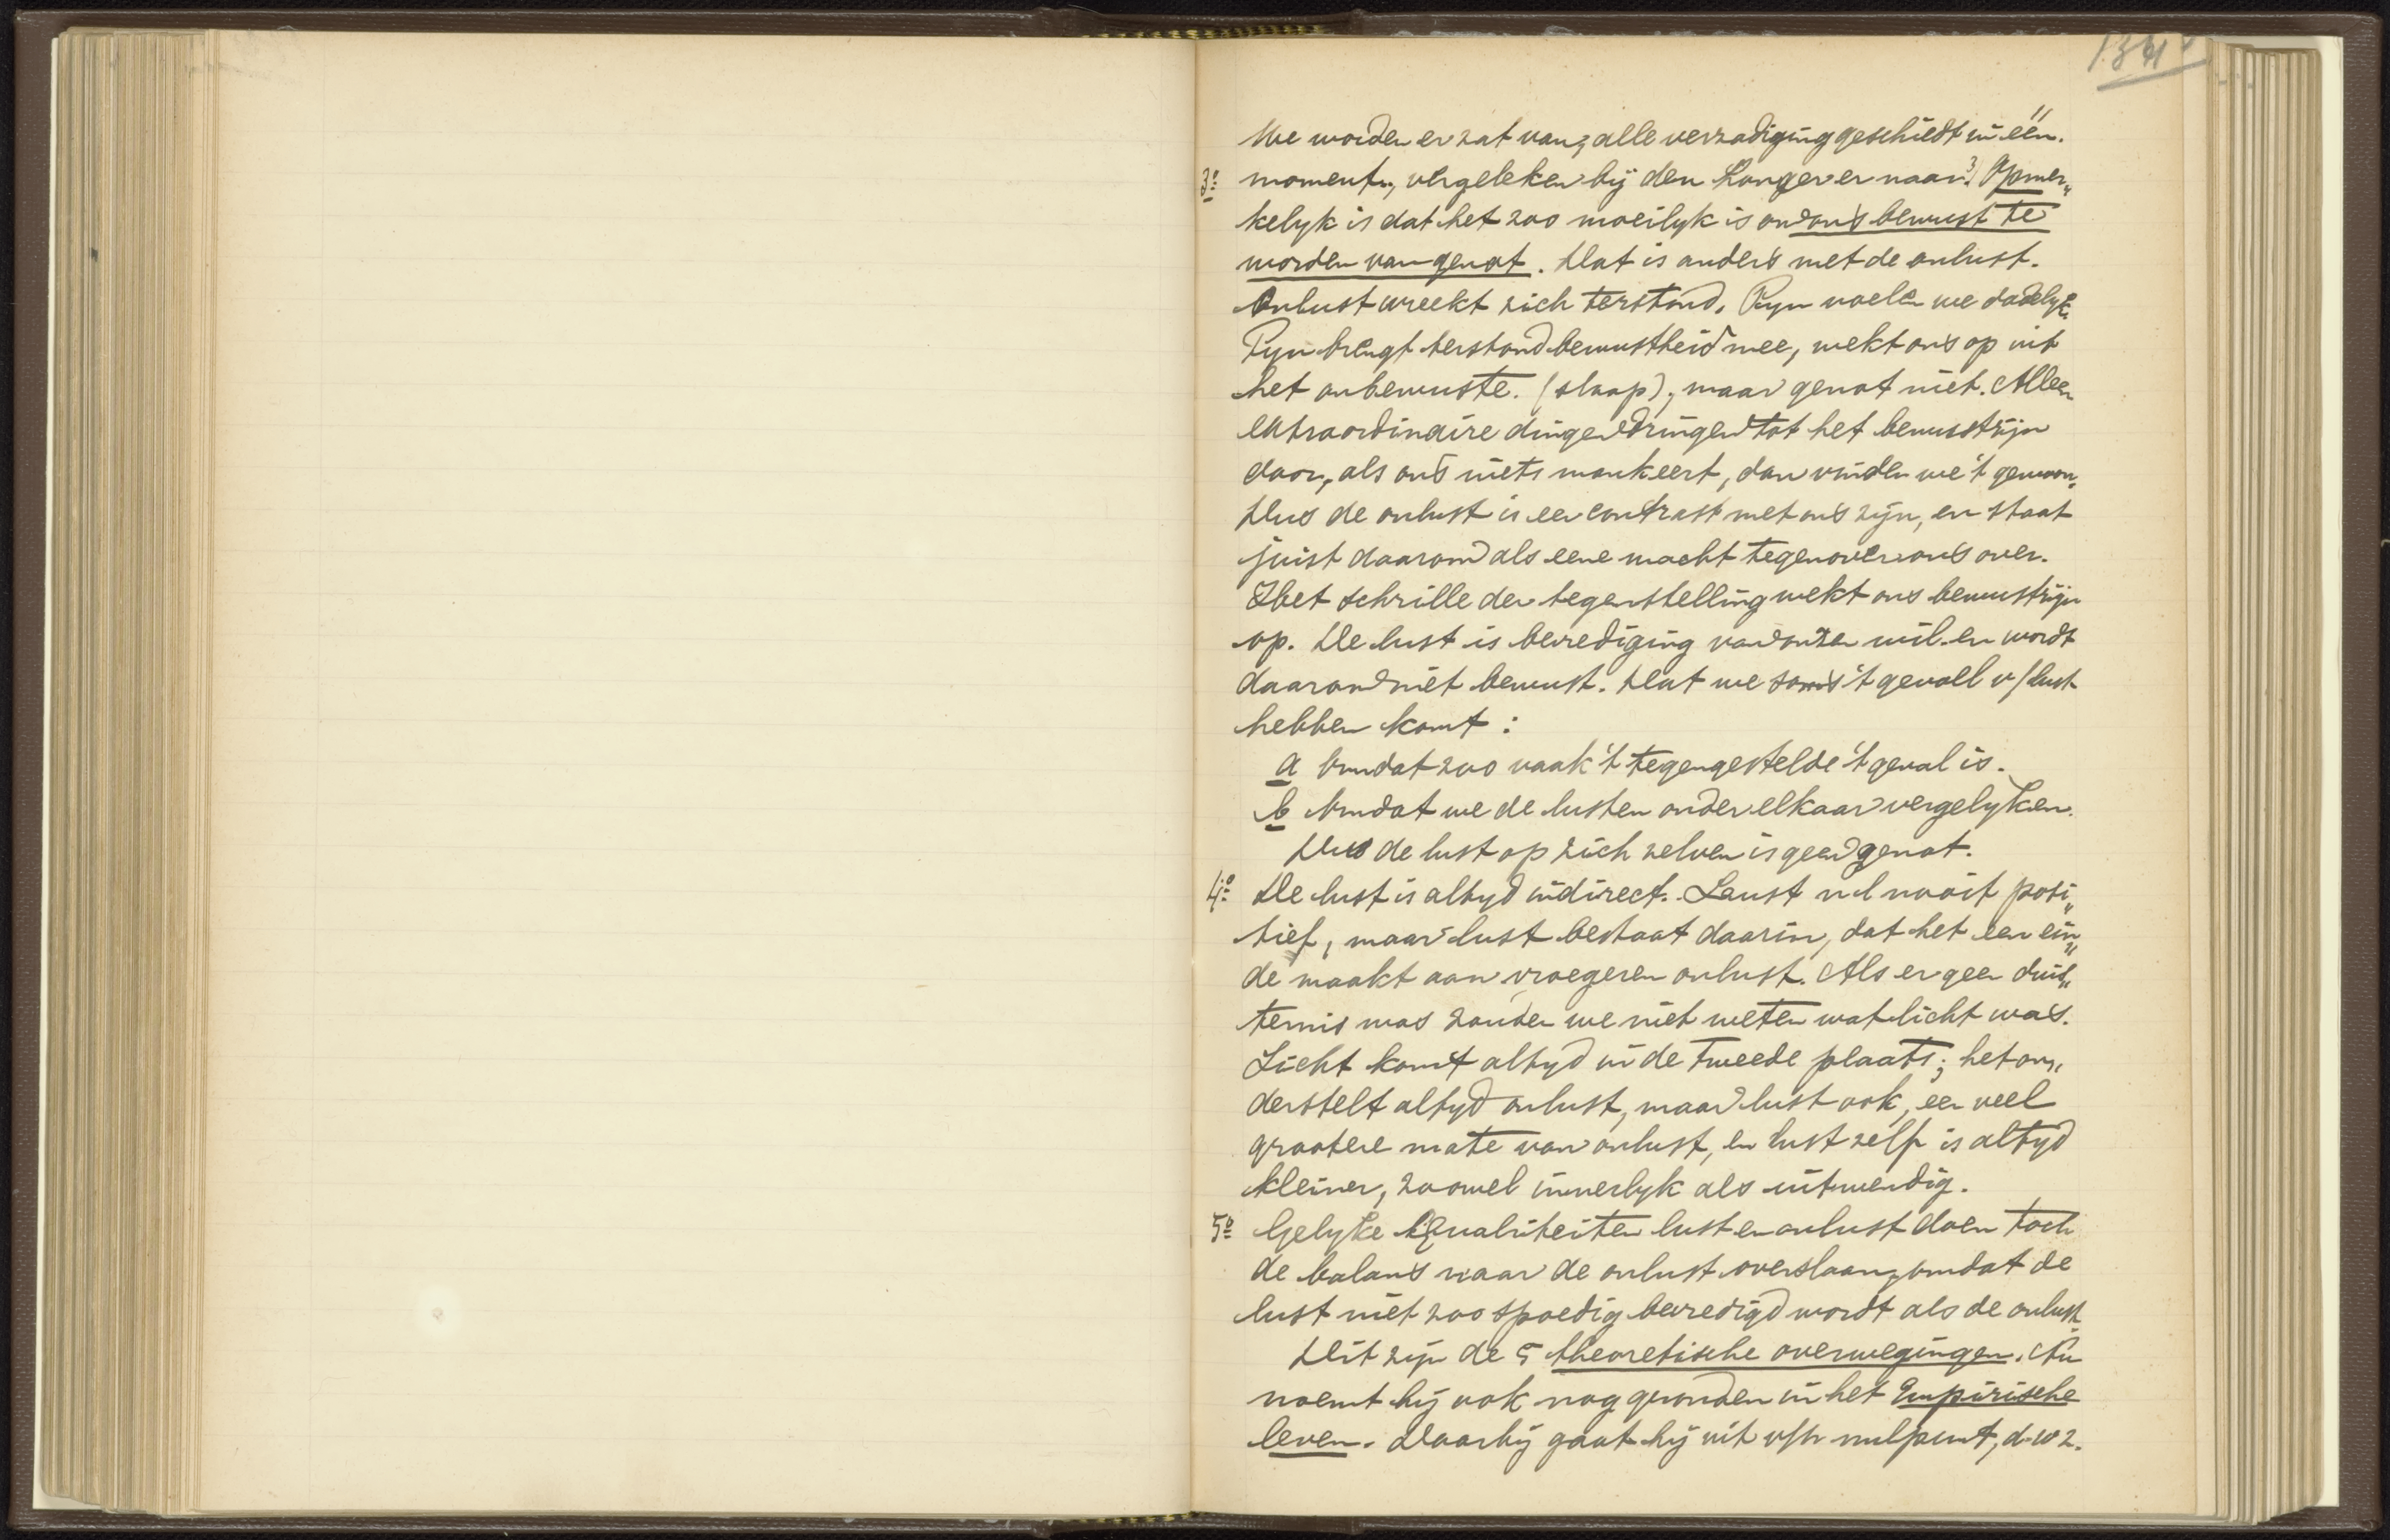 134
We worden er zat van; alle verzadiging geschiedt in één
3º moment, vergeleken bij den honger er naar. 3) Opmer„
kelyk is dat het zoo moeilyk is om ons bewust te
worden van genot. Dat is anders met de onlust.
Onlust wreekt zich terstond. Pyn voelen we dadelyk.
Pyn brengt terstond bewustheid mee, wekt ons op uit
het onbewuste. (slaap), maar genot niet. Alleen
extraordinaire dingen dringen tot het bewustzijn
door, als ons niets mankeert, dan vinden we 't gewoon.
Dus de onlust is een contrast met ons zijn, en staat
juist daarom als eene macht tegenover ons over.
Het schrille der tegenstelling wekt ons bewustzijn
op. De lust is bevrediging van onzen wil en wordt
daarom niet bewust. Dat we soms 't gevoll v/lust
hebben komt:
a Omdat zoo vaak 't tegengestelde 't geval is.
b Omdat we de lusten onder elkaar vergelyken.
Dus de lust op zich zelven is geen genot.
4º De lust is altyd indirect. Lust nl nooit posi„
tief, maar lust bestaat daarin, dat het een ein„
de maakt aan vroegeren onlust. Als er geen duis„
ternis was zouden we niet weten wat licht was.
Licht komt altyd in de tweede plaats; het on„
derstelt altyd onlust, maar lust ook, een veel
grootere mate van onlust, en lust zelf is altyd
kleiner, zoowel innerlyk als uitwendig.
5º Gelyke Qualiteiten lust en onlust doen toch
de balans naar de onlust overslaan, omdat de
lust niet zoo spoedig bevredigd wordt als de onlust.
Dit zijn de 5 theoretische overwegingen. Nu
noemt hij ook nog gronden in het Empirische
leven. Daarbij gaat hij uit v/h nulpunt, d.w z.